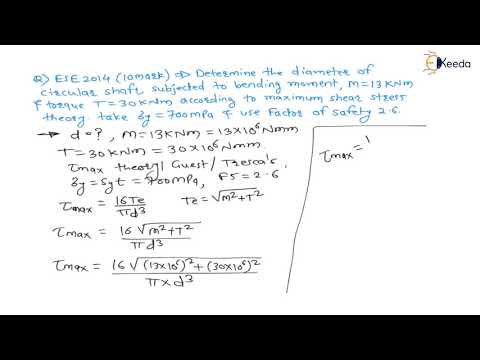 Q) ESE 2014 (10mark) ⇒ Determine the diameter of
circular shaft subjected to bending moment, M=13KNm
& torque T=30KNm according to maximum shear stress
theory. take 3y=700MPa & use Factor of safety 2.6.
→ d=?, M=13KNm=13×10⁶Nmm
T=30KNm=30×10⁶Nmm.
τmax theory/Guest/Tresca's.
3y=Syt=700MPa, FS=2.6
τmax = 16Te/πd³ Te=√M²+T²
τmax = 16√M²+T²/πd³
τmax = 16√(13×10⁶)²+(30×10⁶)²/π×d³
τmax = 1
EKeeda